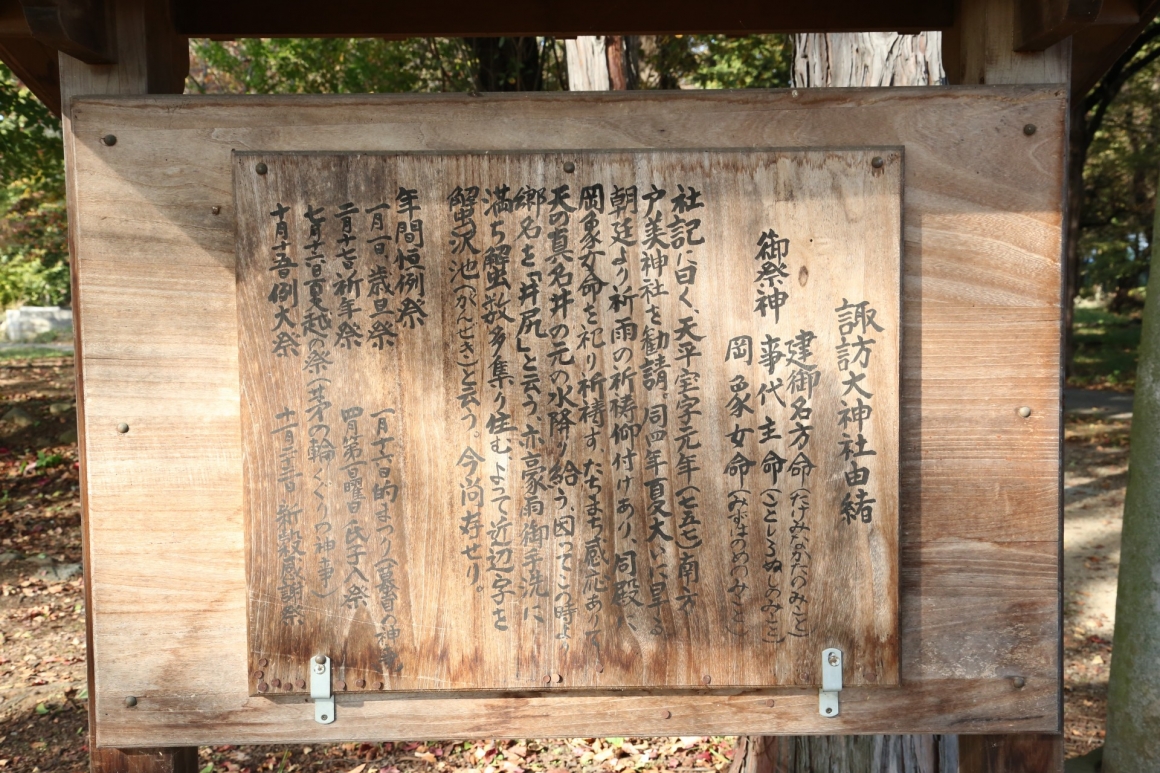 諏訪大神社由緒
御祭神
建御名方命(たけみなかたのみこと)
事代主命(ことしろぬしのみこと)
岡象女命(みずはのめのみこと)
社記に曰く、天平宝字元年(七五七)南方
戸美神社を勧請。同四年夏大いに旱る
朝廷より祈雨の祈祷仰付けあり、同殿に
岡象女命を祀り祈祷す。たちまち感応ありて
天の真名井の元の水降り給う、因ってこの時より
郷名を「井尻」と云う。亦豪雨御手洗に
満ち蟹数多集り住むよって近辺字を
蟹沢池(がんざき)と云う。今尚存せり。
年間恒例祭
一月一日 歳旦祭 一月十六日 的まつり(蟇目の神事
二月十七日 祈年祭 四月第一日曜日 氏子入祭
七月 大祓の祭(茅の輪くぐりの神事)
十月十五日 例大祭 十一月二十三日 新穀感謝祭